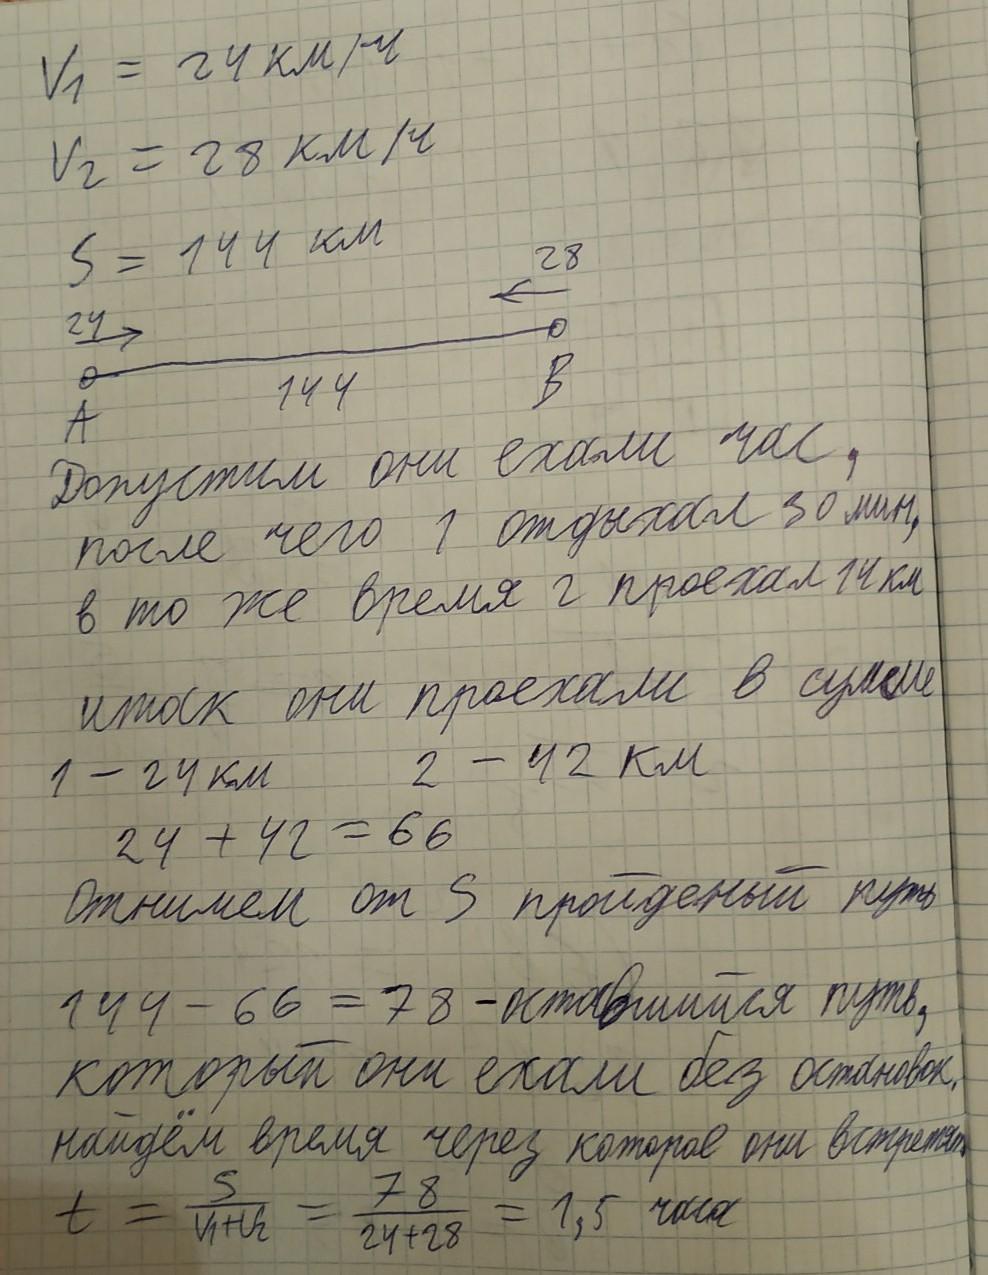 V1 = 24 км/ч
V2 = 28 км/ч
S = 144 км
28
24
144
A
B
Допустим они ехали час,
после чего 1 отдыхал 30 мин,
в то же время 2 проехал 14 км
итак они проехали в сумме
1 – 24 км 2 – 42 км
24 + 42 = 66
Отнимем от S пройденый путь
144 – 66 = 78 – оставшийся путь,
который они ехали без остановок.
найдём время через которое они встретят.
t = S/(V1+V2) = 78/(24+28) = 1,5 часа